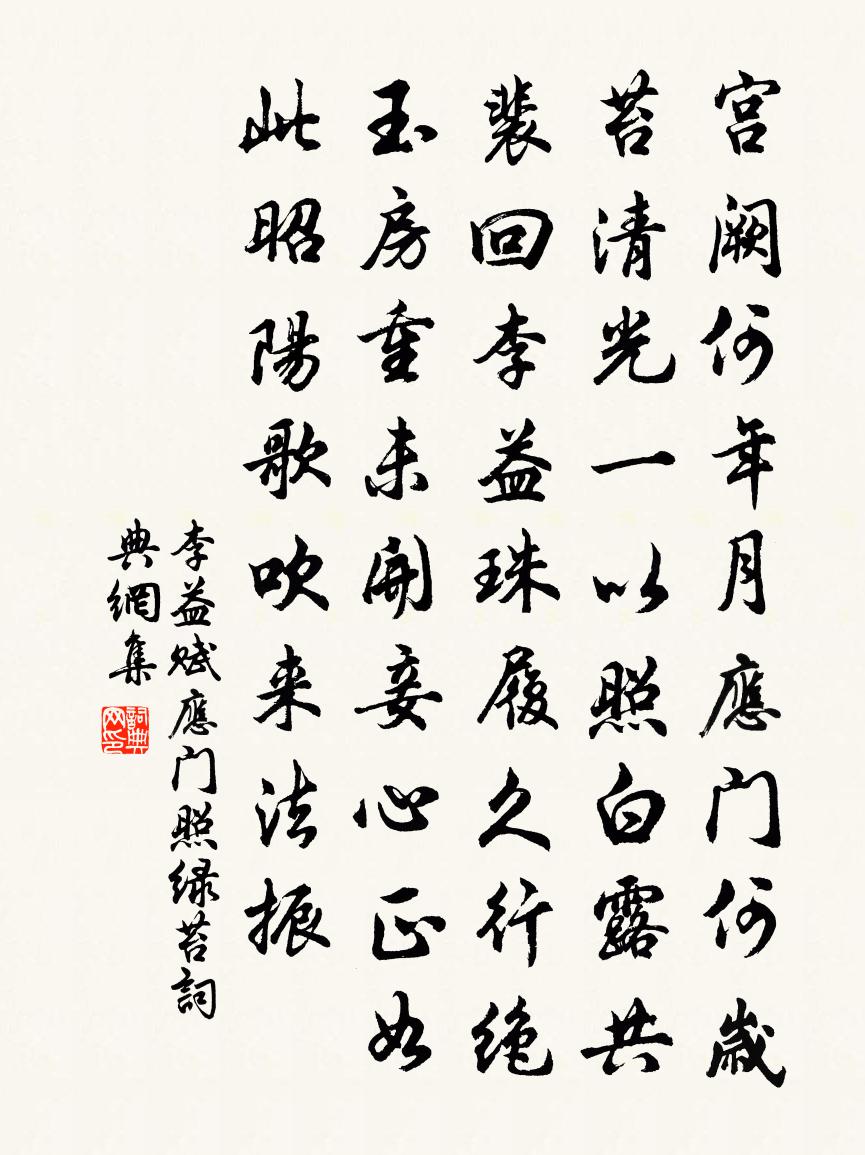 宮闕何年月應门何歲
苔清光一以照白露共
裴回李益珠履久行绝
玉房重未開妾心正如
此昭陽歌吹来法振
李益賦應门照緑苔詞
典網集
詞典
网印